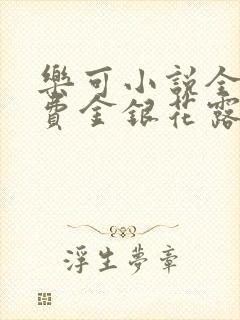 樂可小說全
費金銀花露
浮生夢章